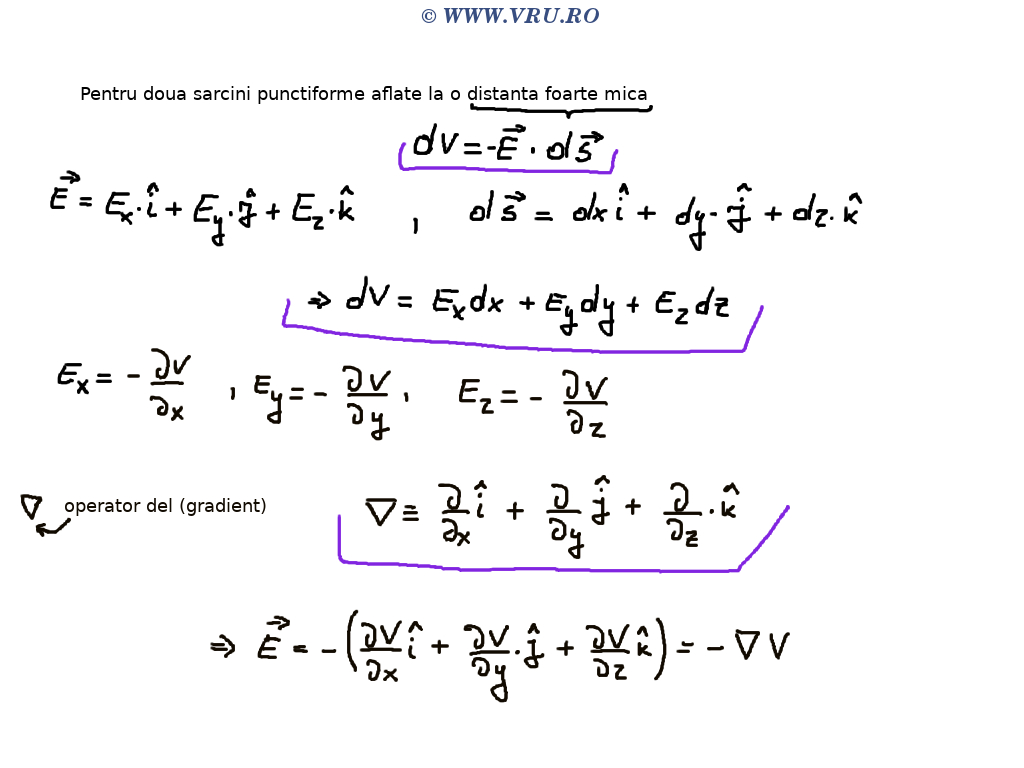 © WWW.VRU.RO
Pentru doua sarcini punctiforme aflate la o distanta foarte mica
dV = -E⃗ · ds⃗
E⃗ = Eₓ·î + E_y·ĵ + E_z·k̂ , ds⃗ = dx î + dy·ĵ + dz·k̂
⇒ dV = Eₓdx + E_y dy + E_z dz
Eₓ = - ∂V/∂x , E_y = - ∂V/∂y , E_z = - ∂V/∂z
∇ operator del (gradient) ∇ ≡ ∂/∂x î + ∂/∂y ĵ + ∂/∂z · k̂
⇒ E⃗ = -(∂V/∂x î + ∂V/∂y · ĵ + ∂V/∂z k̂) = - ∇V